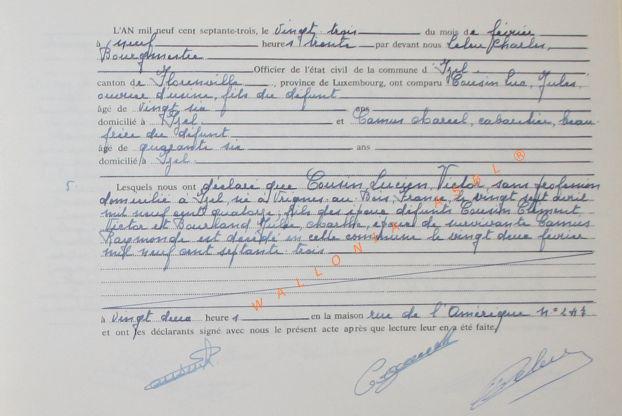 L'AN mil neuf cent septante-trois, le vingt trois du mois de février
à neuf heures trente par devant nous Lebu Charles,
Bourgmestre
Officier de l'état civil de la commune d'Izel
canton de Florenville, province de Luxembourg, ont comparu Cousin Luc, Jules,
ouvrier d'usine, fils du défunt
âgé de vingt six ans
domicilié à Izel et Camus Marcel, cabaretier, beau
frère du défunt
âgé de quarante six ans
domicilié à Izel
5. Lesquels nous ont déclaré que Cousin, Lucien, Victor, sans profession
domicilié à Izel, né à Vrignes au Bois, France, le vingt sept avril
mil neuf cent quatorze, fils des époux défunts Cousin Clément
Victor et Bourland Julie, Marthe, époux de survivante Camus
Raymonde est décédé en cette commune le vingt deux février
mil neuf cent septante trois
à vingt deux heures en la maison rue de l'Amérique n°
et ont les déclarants signé avec nous le présent acte après que lecture leur en a été faite,
WALLONIA ASBL ®